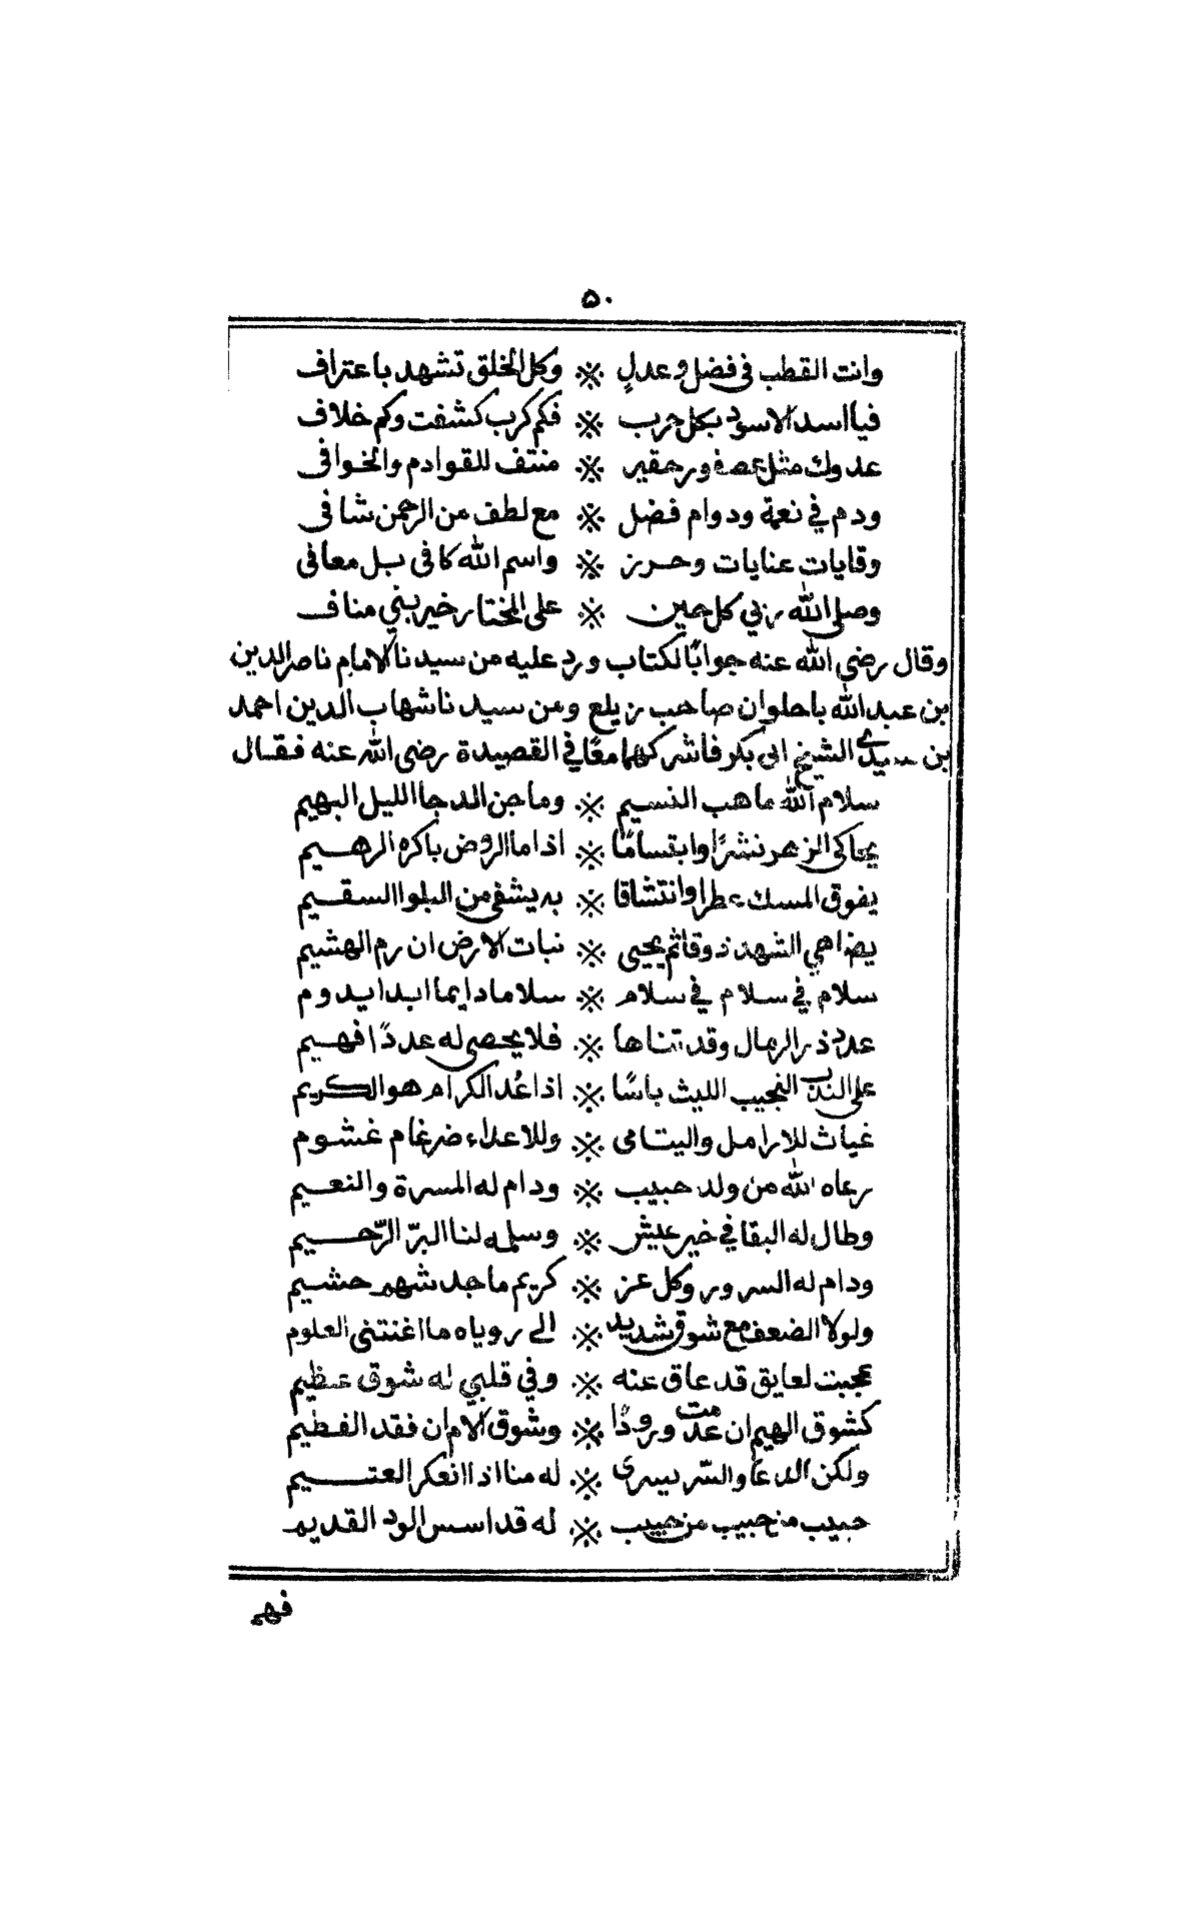 ٥٠
وانت القطب في فضل وعدلٍ ※ وكل الخلق تشهد باعتراف
فيا اسد الاسود بكل حرب ※ فكم كرب كشفت وكم خلاف
عدوك مثل عصفور حقير ※ منتف للقوادم والخوافى
ودم في نعمة ودوام فضل ※ مع لطف من الرحمن شافى
وقايات عنايات وحرز ※ واسم الله كافى بل معافى
وصلى الله ربي كل حين ※ على المختار خير بني مناف
وقال رضي الله عنه جوابًا لكتاب ورد عليه من سيدنا الامام ناصر الدين
بن عبد الله باحلوان صاحب زيلع ومن سيدنا شهاب الدين احمد
بن سيدي الشيخ ابى بكر فأشركهما معًا في القصيدة رضى الله عنه فقال
سلام الله ما هب النسيم ※ وما جن الدجا الليل البهيم
يحاكى الزهر نشرًا وابتسامًا ※ اذا ما الروض باكره الرهيم
يفوق المسك عطرا وانتشاقا ※ به يشفى من البلوا السقيم
يضاهي الشهد ذوقا ثم يحيى ※ نبات الارض ان رم الهشيم
سلام في سلام في سلام ※ سلاما دايما ابدا يدوم
عدد ذر الرمال وقد تناها ※ فلا يحصى له عددًا فهيم
على الندب النجيب الليث باسًا ※ اذا عُد الكرام هو الكريم
غياث للارامل واليتامى ※ وللاعداء ضرغام غشوم
رعاه الله من ولد حبيب ※ ودام له المسرة والنعيم
وطال له البقا في خير عيش ※ وسلمه لنا البرّ الرّحيم
ودام له السرور وكل عز ※ كريم ماجد شهم حشيم
ولولا الضعف مع شوق شديد ※ الى روياه ما اغنتنى العلوم
عجبت لعايق قد عاق عنه ※ وفي قلبي له شوق عظيم
كشوق الهيم ان عدمت ورودًا ※ وشوق الام ان فقد الفطيم
ولكن الدعا والسّر يسرى ※ له منا اذا انعكر العتيم
حبيب من حبيب من حبيب ※ له قد اسس الود القديم
فهم